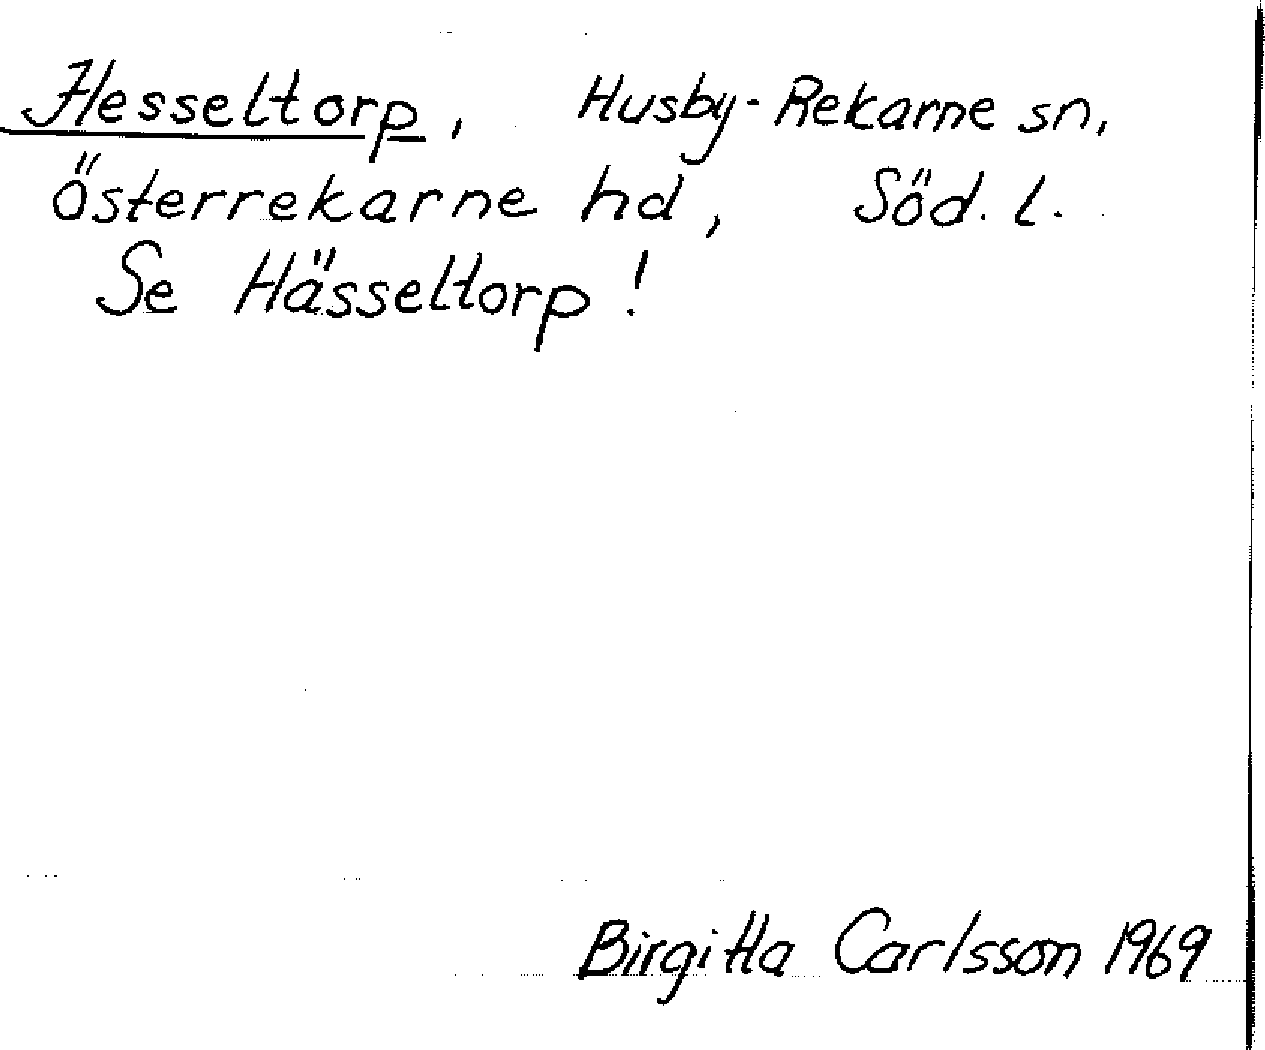 Hesseltorp, Husby-Rekarne sn,
Österrekarne hd, Söd. l.
Se Hässeltorp!
Birgitta Carlsson 1969